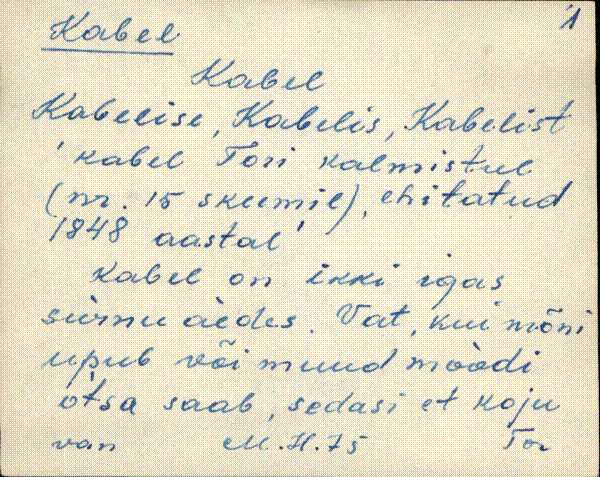 Kabel 1
Kabel
Kabelise, Kabelis, Kabelist
'kabel Tori kalmistul
(nr. 15 skeemil), ehitatud
1848 aastal'
Kabel on ikki igas
surnuaedes. Vat, kui mõni
upub või muud moodi
otsa saab, sedasi et koju
van M.H.75 Tor